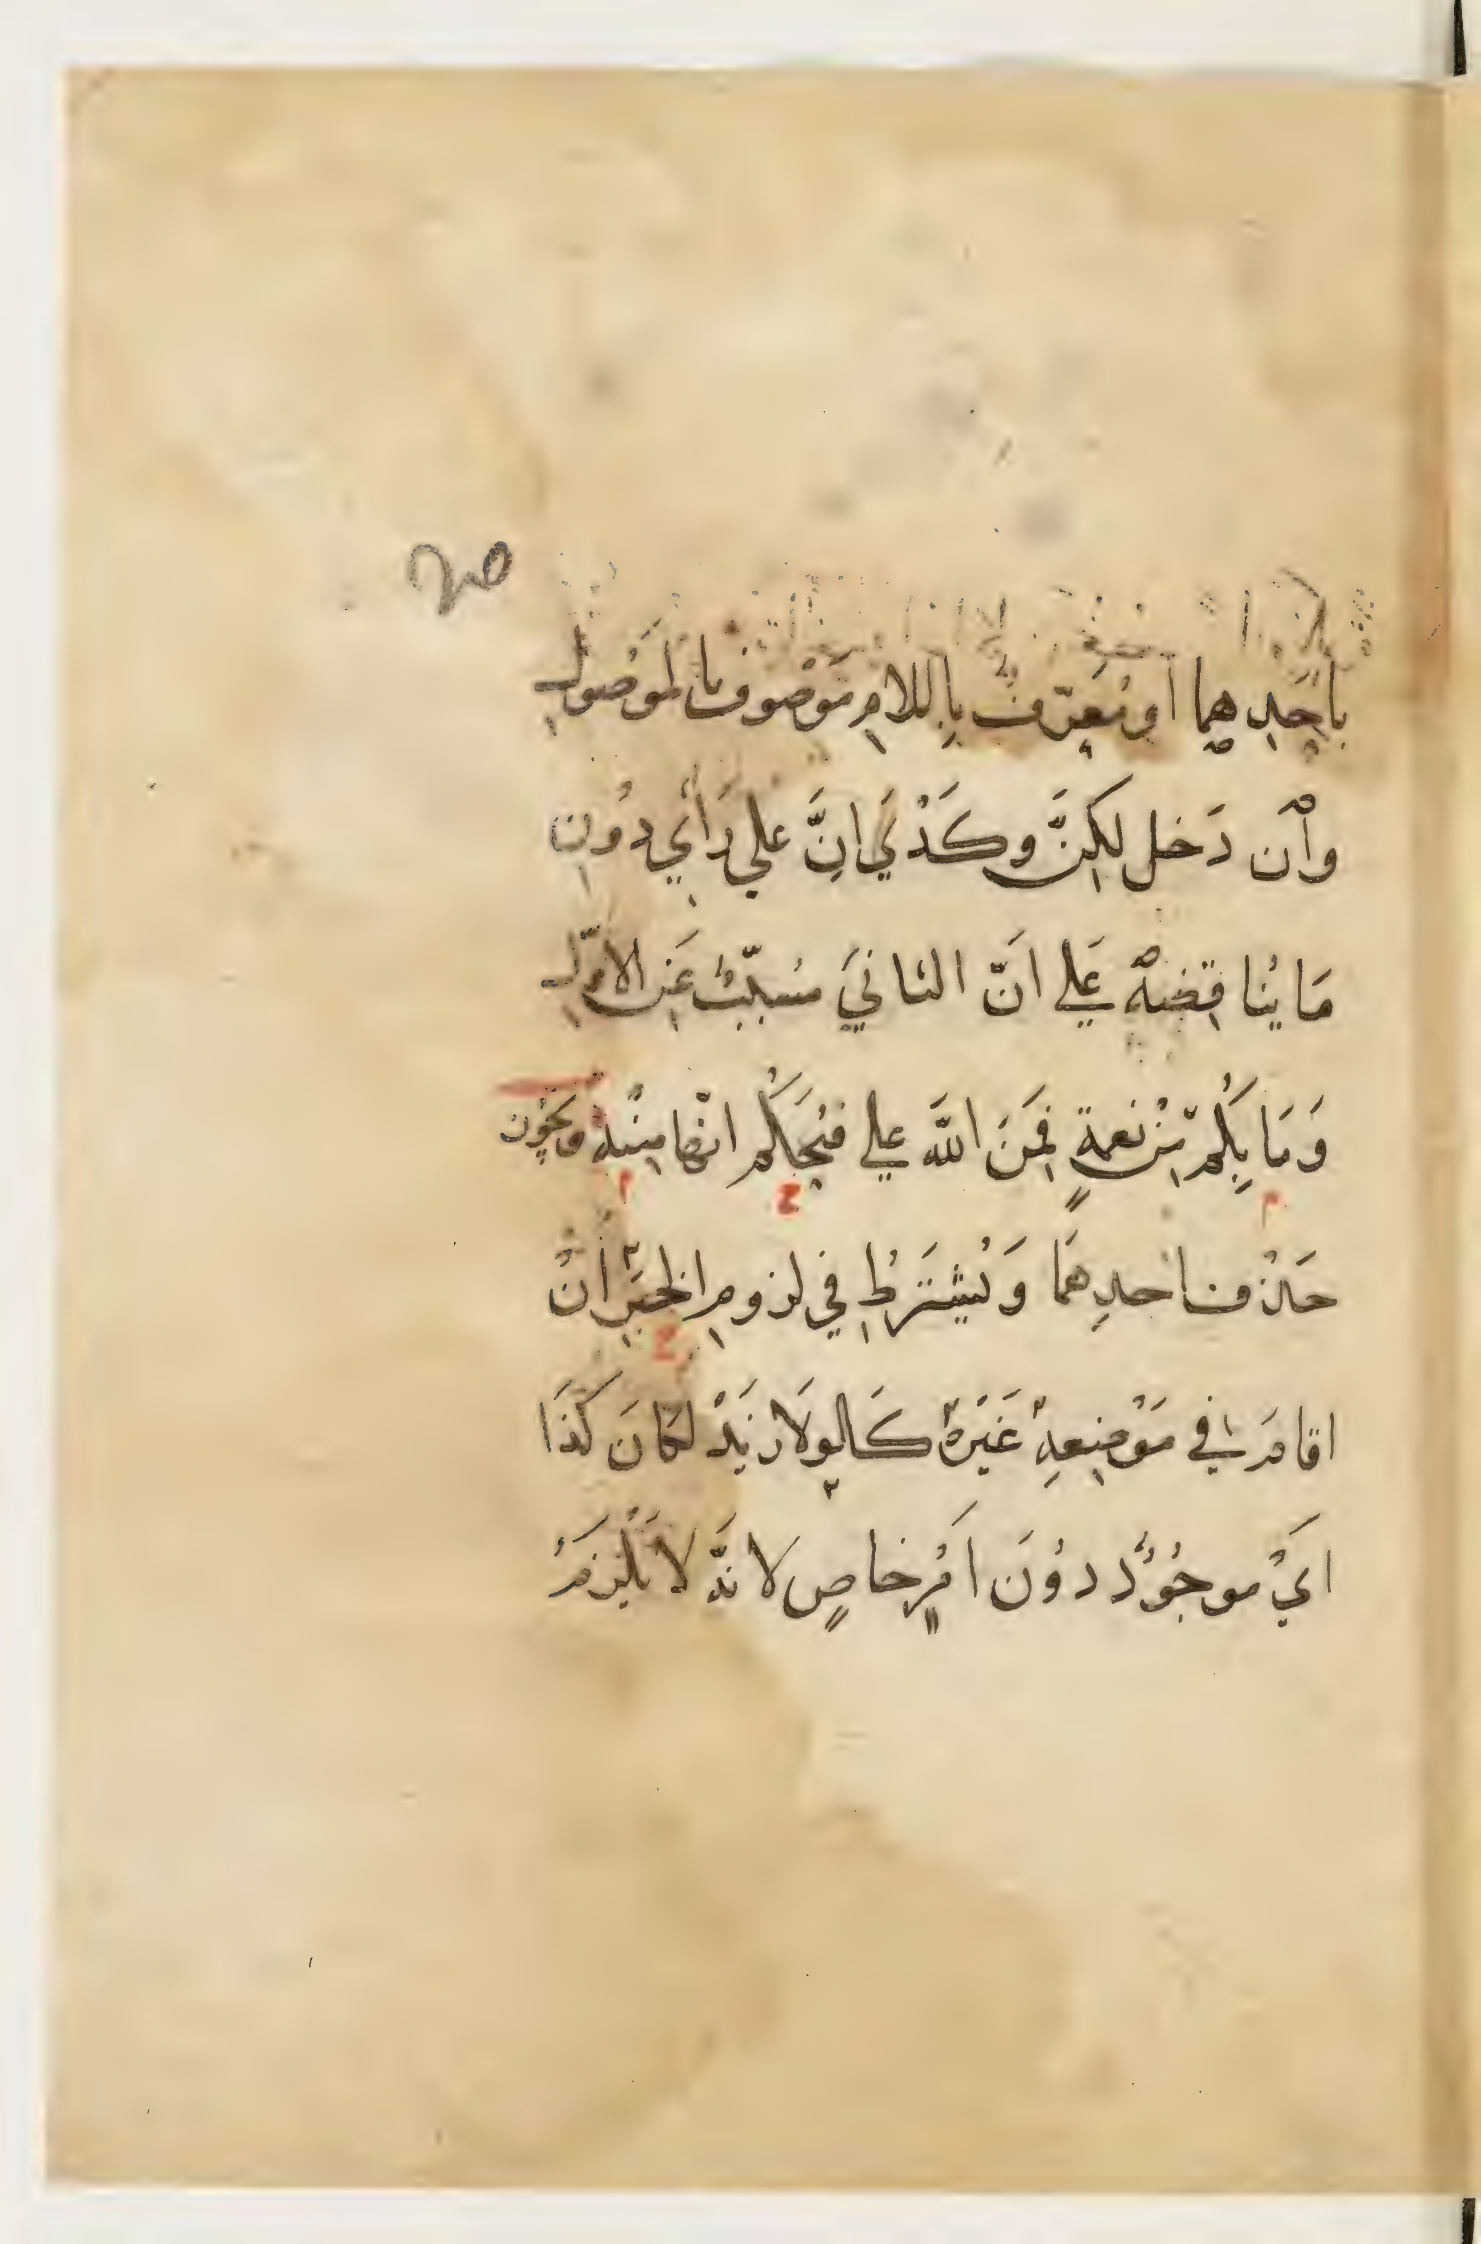 بِاَحَدِهِمَا اَوْ مُعَرَّفٌ بِاللَّامِ مَوْصُوفٌ بِالْمَوْصُولِ
وَاِنْ دَخَلَ لَكِنَّ وَكَذَيْ اِنَّ عَلَي رَأيٍ دُونِ
مَا يُنَاقِضُهُ عَلَي اَنَّ الثَّانِيَ مُسَبَّبٌ عَنِ الْاَوَّلِ
وَمَا بِكُمْ مِنْ نِعْمَةٍ فَمِنَ اللّٰهِ عَلَي اَنَّهَا مِنْهُ وَيَجُوزُ
حَذْفُ اَحَدِهِمَا وَيُشْتَرَطُ فِي لُزُومِ الْخَبَرِ اَنْ
اقامَ فِي مَوْضِعِهِ غَيْرُهُ كَالَوْلَا زَيْدٌ لَكَانَ كَذَا
اَيْ مَوْجُوْدٌ دُوْنَ اَمْرٍ خَاصٍ لِاَنَّهُ لَا يَلْزَمُ